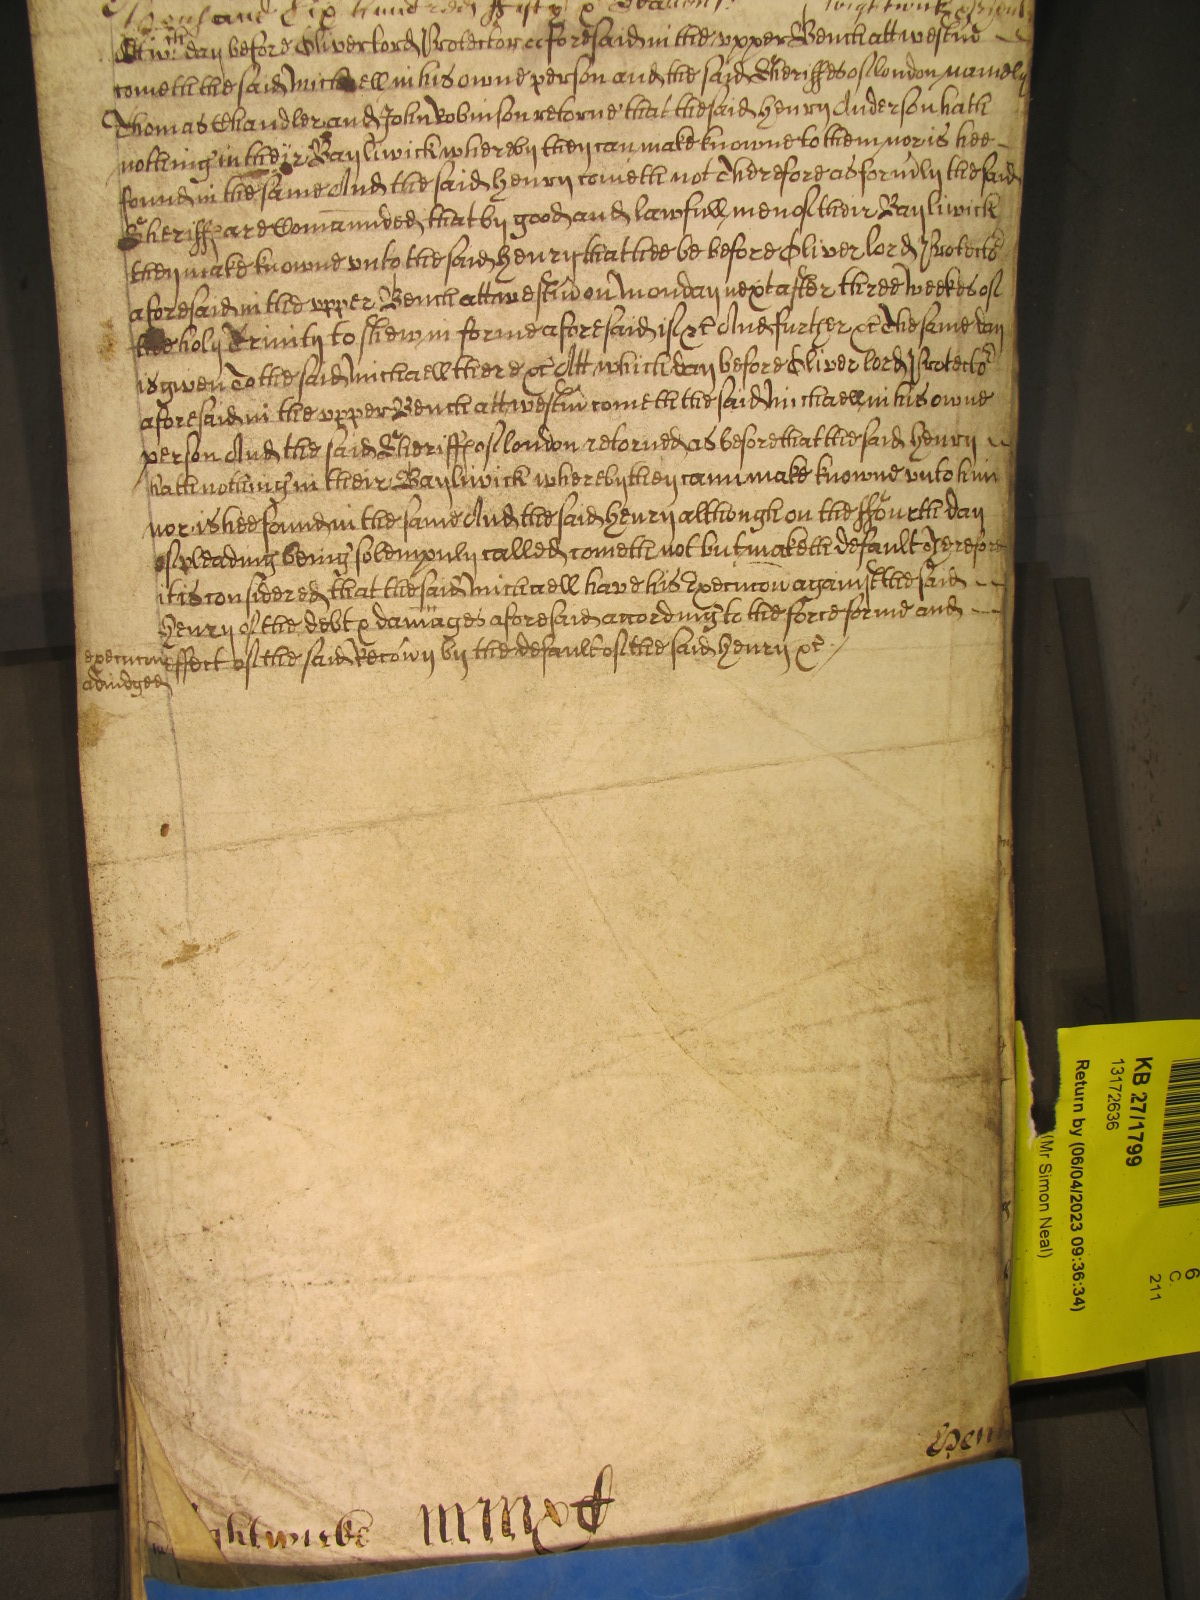 Thousand six hundred ffifty & Seaven
Att wch day before Oliver lord Protector aforesaid in the vpper Bench att westm̃
cometh the said Michaell in his owne person and the said Sheriffes of london namely
Thomas Chandler and John Robinson retorne that the said Henry Anderson hath
nothing in their Bayliwick whereby they can make knowne to them nor is hee
found in the same And the said Henry cometh not Therefore as formly the said
Sheriff are Com̃anded that by good and lawfull men of their Bayliwick
they make knowne vnto the said Henry that hee be before Oliver lord Protector
aforesaid in the vpper Bench att westm̃ on Monday next after three weekes of
the holy Trinity to shew in forme aforesaid if &c And further &c The same day
is given To the said Michaell there &c Att which day before Oliver lord Protector
aforesaid in the vpper Bench att westm̃ cometh the said Michaell in his owne
person And the said Sheriff of london retorned as before that the said Henry
hath nothing in their Bayliwick whereby they cann make knowne vnto him
nor is hee found in the same And the said Henry although on the ffourth day
of pleading being solempnly called cometh not but maketh default Therefore
it is considered that the said Michaell have his Execuc̃on against the said
Henry of the debt & damages aforesaid according to the force forme and
effect of the said Recov̾y by the default of the said Henry &c
execuc̃on
adiudged
KB 27/1799
13172636
Return by (06/04/2023 09:36:34)
(Mr Simon Neal)
6
C
211